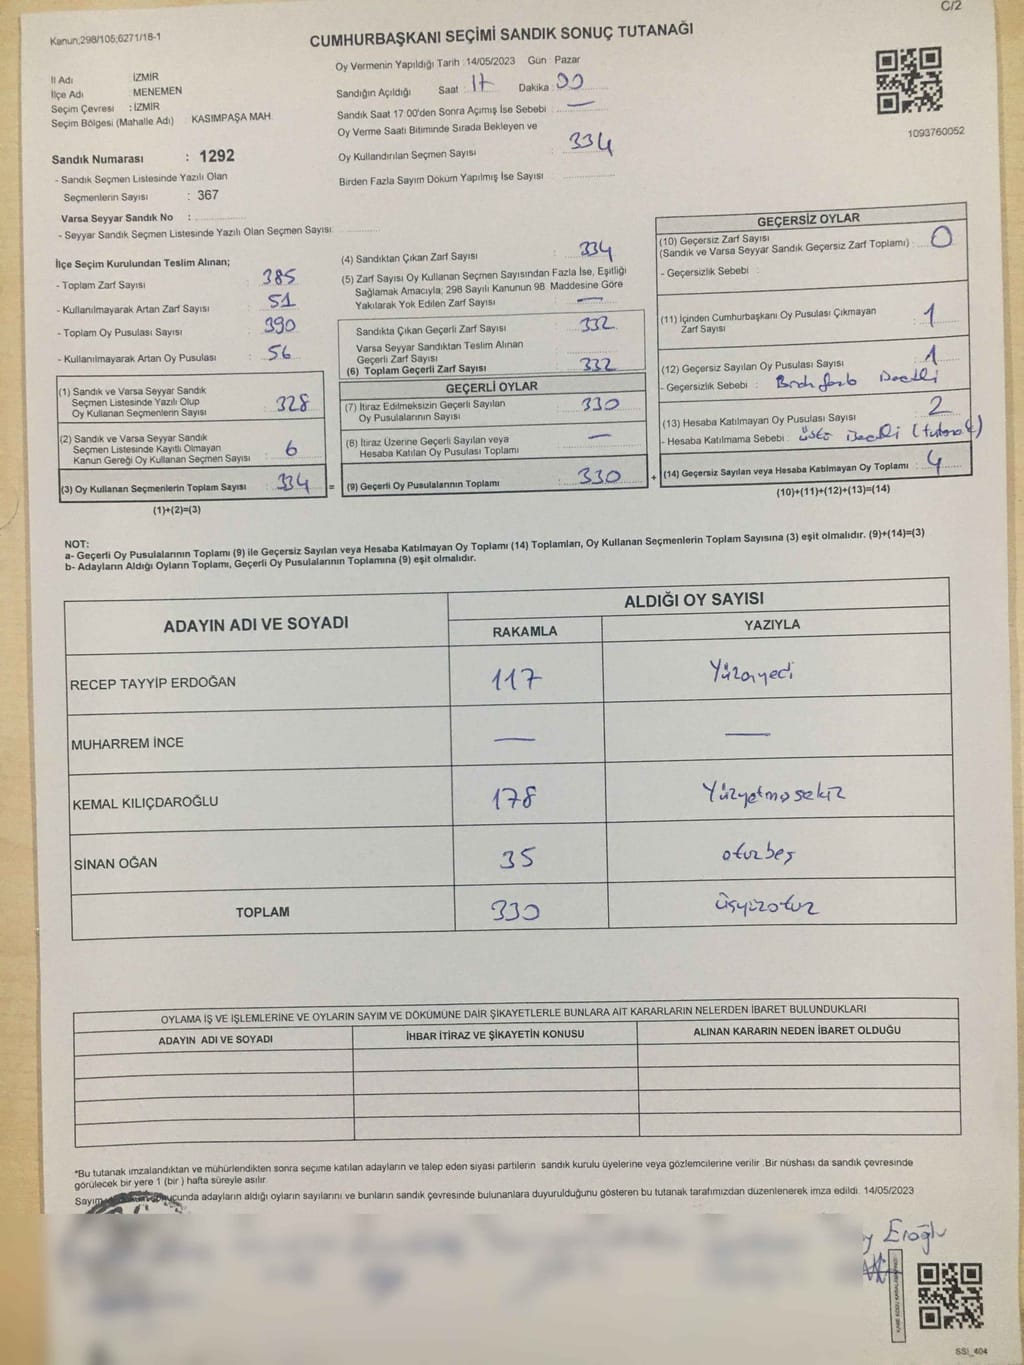 C/2
Kanun;298/105;6271/18-1
CUMHURBAŞKANI SEÇİMİ SANDIK SONUÇ TUTANAĞI
İl Adı : İZMİR
İlçe Adı : MENEMEN
Seçim Çevresi : İZMİR
Seçim Bölgesi (Mahalle Adı) : KASIMPAŞA MAH.
Oy Vermenin Yapıldığı Tarih : 14/05/2023 Gün : Pazar
Sandığın Açıldığı Saat : 17 Dakika : 00
Sandık Saat 17.00'den Sonra Açımış İse Sebebi : —
Oy Verme Saati Bitiminde Sırada Bekleyen ve
Oy Kullandırılan Seçmen Sayısı : 334
Birden Fazla Sayım Döküm Yapılmış İse Sayısı :
1093760052
Sandık Numarası : 1292
- Sandık Seçmen Listesinde Yazılı Olan
Seçmenlerin Sayısı : 367
Varsa Seyyar Sandık No :
- Seyyar Sandık Seçmen Listesinde Yazılı Olan Seçmen Sayısı:
İlçe Seçim Kurulundan Teslim Alınan;
- Toplam Zarf Sayısı : 385
- Kullanılmayarak Artan Zarf Sayısı : 51
- Toplam Oy Pusulası Sayısı : 390
- Kullanılmayarak Artan Oy Pusulası : 56
(1) Sandık ve Varsa Seyyar Sandık
Seçmen Listesinde Yazılı Olup
Oy Kullanan Seçmenlerin Sayısı : 328
(2) Sandık ve Varsa Seyyar Sandık
Seçmen Listesinde Kayıtlı Olmayan
Kanun Gereği Oy Kullanan Seçmen Sayısı : 6
(3) Oy Kullanan Seçmenlerin Toplam Sayısı : 334 =
(1)+(2)=(3)
(4) Sandıktan Çıkan Zarf Sayısı : 334
(5) Zarf Sayısı Oy Kullanan Seçmen Sayısından Fazla İse, Eşitliği
Sağlamak Amacıyla; 298 Sayılı Kanunun 98. Maddesine Göre
Yakılarak Yok Edilen Zarf Sayısı : —
Sandıkta Çıkan Geçerli Zarf Sayısı : 332
Varsa Seyyar Sandıktan Teslim Alınan
Geçerli Zarf Sayısı :
(6) Toplam Geçerli Zarf Sayısı : 332
GEÇERLİ OYLAR
(7) İtiraz Edilmeksizin Geçerli Sayılan
Oy Pusulalarının Sayısı : 330
(8) İtiraz Üzerine Geçerli Sayılan veya
Hesaba Katılan Oy Pusulası Toplamı : —
(9) Geçerli Oy Pusulalarının Toplamı : 330 +
GEÇERSİZ OYLAR
(10) Geçersiz Zarf Sayısı
(Sandık ve Varsa Seyyar Sandık Geçersiz Zarf Toplamı) : 0
- Geçersizlik Sebebi :
(11) İçinden Cumhurbaşkanı Oy Pusulası Çıkmayan
Zarf Sayısı : 1
(12) Geçersiz Sayılan Oy Pusulası Sayısı : 1
- Geçersizlik Sebebi :
(13) Hesaba Katılmayan Oy Pusulası Sayısı : 2
- Hesaba Katılmama Sebebi :
(14) Geçersiz Sayılan veya Hesaba Katılmayan Oy Toplamı : 4
(10)+(11)+(12)+(13)=(14)
NOT:
a- Geçerli Oy Pusulalarının Toplamı (9) ile Geçersiz Sayılan veya Hesaba Katılmayan Oy Toplamı (14) Toplamları, Oy Kullanan Seçmenlerin Toplam Sayısına (3) eşit olmalıdır. (9)+(14)=(3)
b- Adayların Aldığı Oyların Toplamı, Geçerli Oy Pusulalarının Toplamına (9) eşit olmalıdır.
ADAYIN ADI VE SOYADI
ALDIĞI OY SAYISI
RAKAMLA YAZIYLA
RECEP TAYYİP ERDOĞAN 117 Yüzonyedi
MUHARREM İNCE — —
KEMAL KILIÇDAROĞLU 178 Yüzyetmişsekiz
SİNAN OĞAN 35 otuzbeş
TOPLAM 330 üçyüzotuz
OYLAMA İŞ VE İŞLEMLERİNE VE OYLARIN SAYIM VE DÖKÜMÜNE DAİR ŞİKAYETLERLE BUNLARA AİT KARARLARIN NELERDEN İBARET BULUNDUKLARI
ADAYIN ADI VE SOYADI İHBAR İTİRAZ VE ŞİKAYETİN KONUSU ALINAN KARARIN NEDEN İBARET OLDUĞU
*Bu tutanak imzalandıktan ve mühürlendikten sonra seçime katılan adayların ve talep eden siyasi partilerin sandık kurulu üyelerine veya gözlemcilerine verilir .Bir nüshası da sandık çevresinde
görülecek bir yere 1 (bir ) hafta süreyle asılır
Sayım ucunda adayların aldığı oyların sayılarını ve bunların sandık çevresinde bulunanlara duyurulduğunu gösteren bu tutanak tarafımızdan düzenlenerek imza edildi. 14/05/2023
Eroğlu
SSI_404